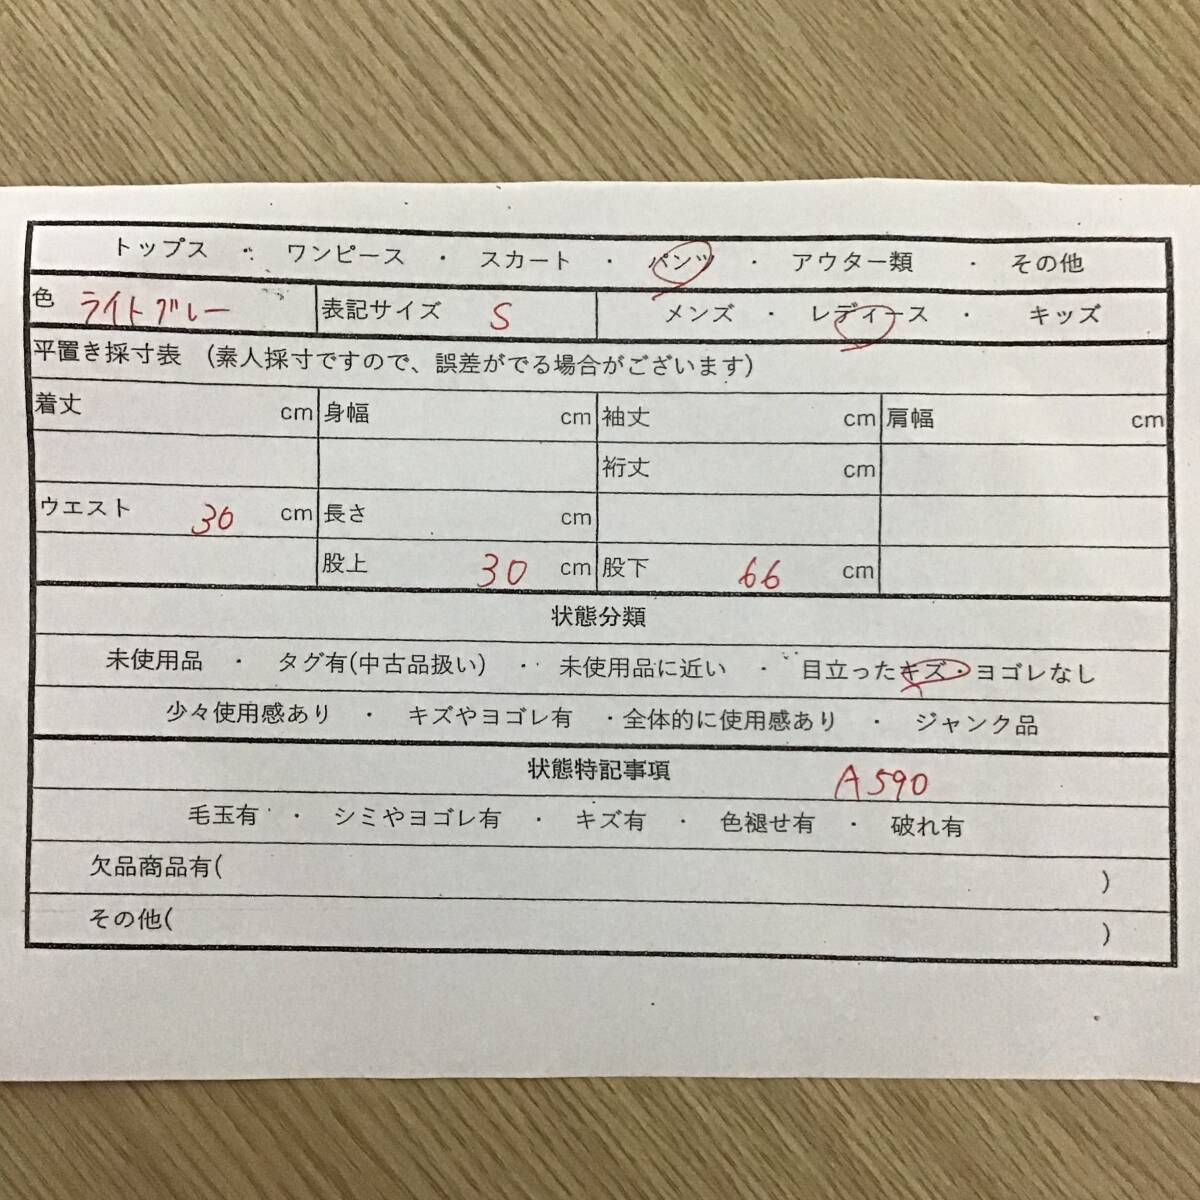 トップス ・ ワンピース ・ スカート ・ パンツ ・ アウター類 ・ その他
色 ライトグレー 表記サイズ S メンズ ・ レディース ・ キッズ
平置き採寸表 (素人採寸ですので、誤差がでる場合がございます)
着丈 cm 身幅 cm 袖丈 cm 肩幅 cm
裄丈 cm
ウエスト 30 cm 長さ cm
股上 30 cm 股下 66 cm
状態分類
未使用品 ・ タグ有(中古品扱い) ・ 未使用品に近い ・ 目立ったキズ・ヨゴレなし
少々使用感あり ・ キズやヨゴレ有 ・全体的に使用感あり ・ ジャンク品
状態特記事項 A590
毛玉有 ・ シミやヨゴレ有 ・ キズ有 ・ 色褪せ有 ・ 破れ有
欠品商品有( )
その他( )